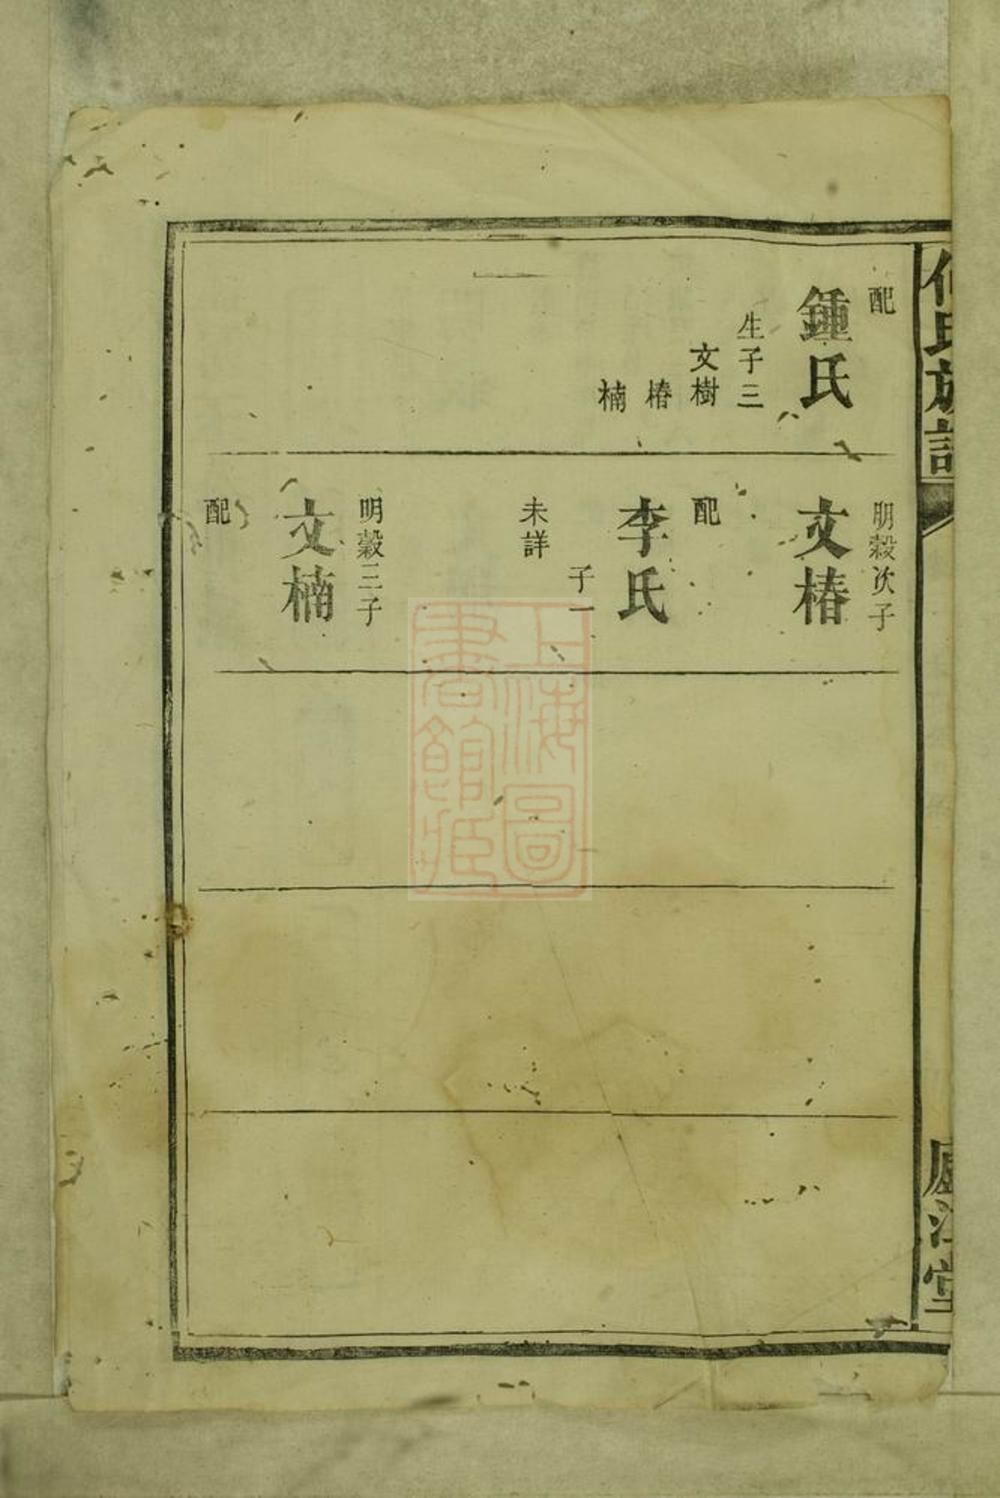 何氏族譜
廬江堂
配
鍾氏
生子三
文樹
椿
楠
明榖次子
文椿
配
李氏
子一
未詳
明榖三子
文楠
配
上海圖
書館藏